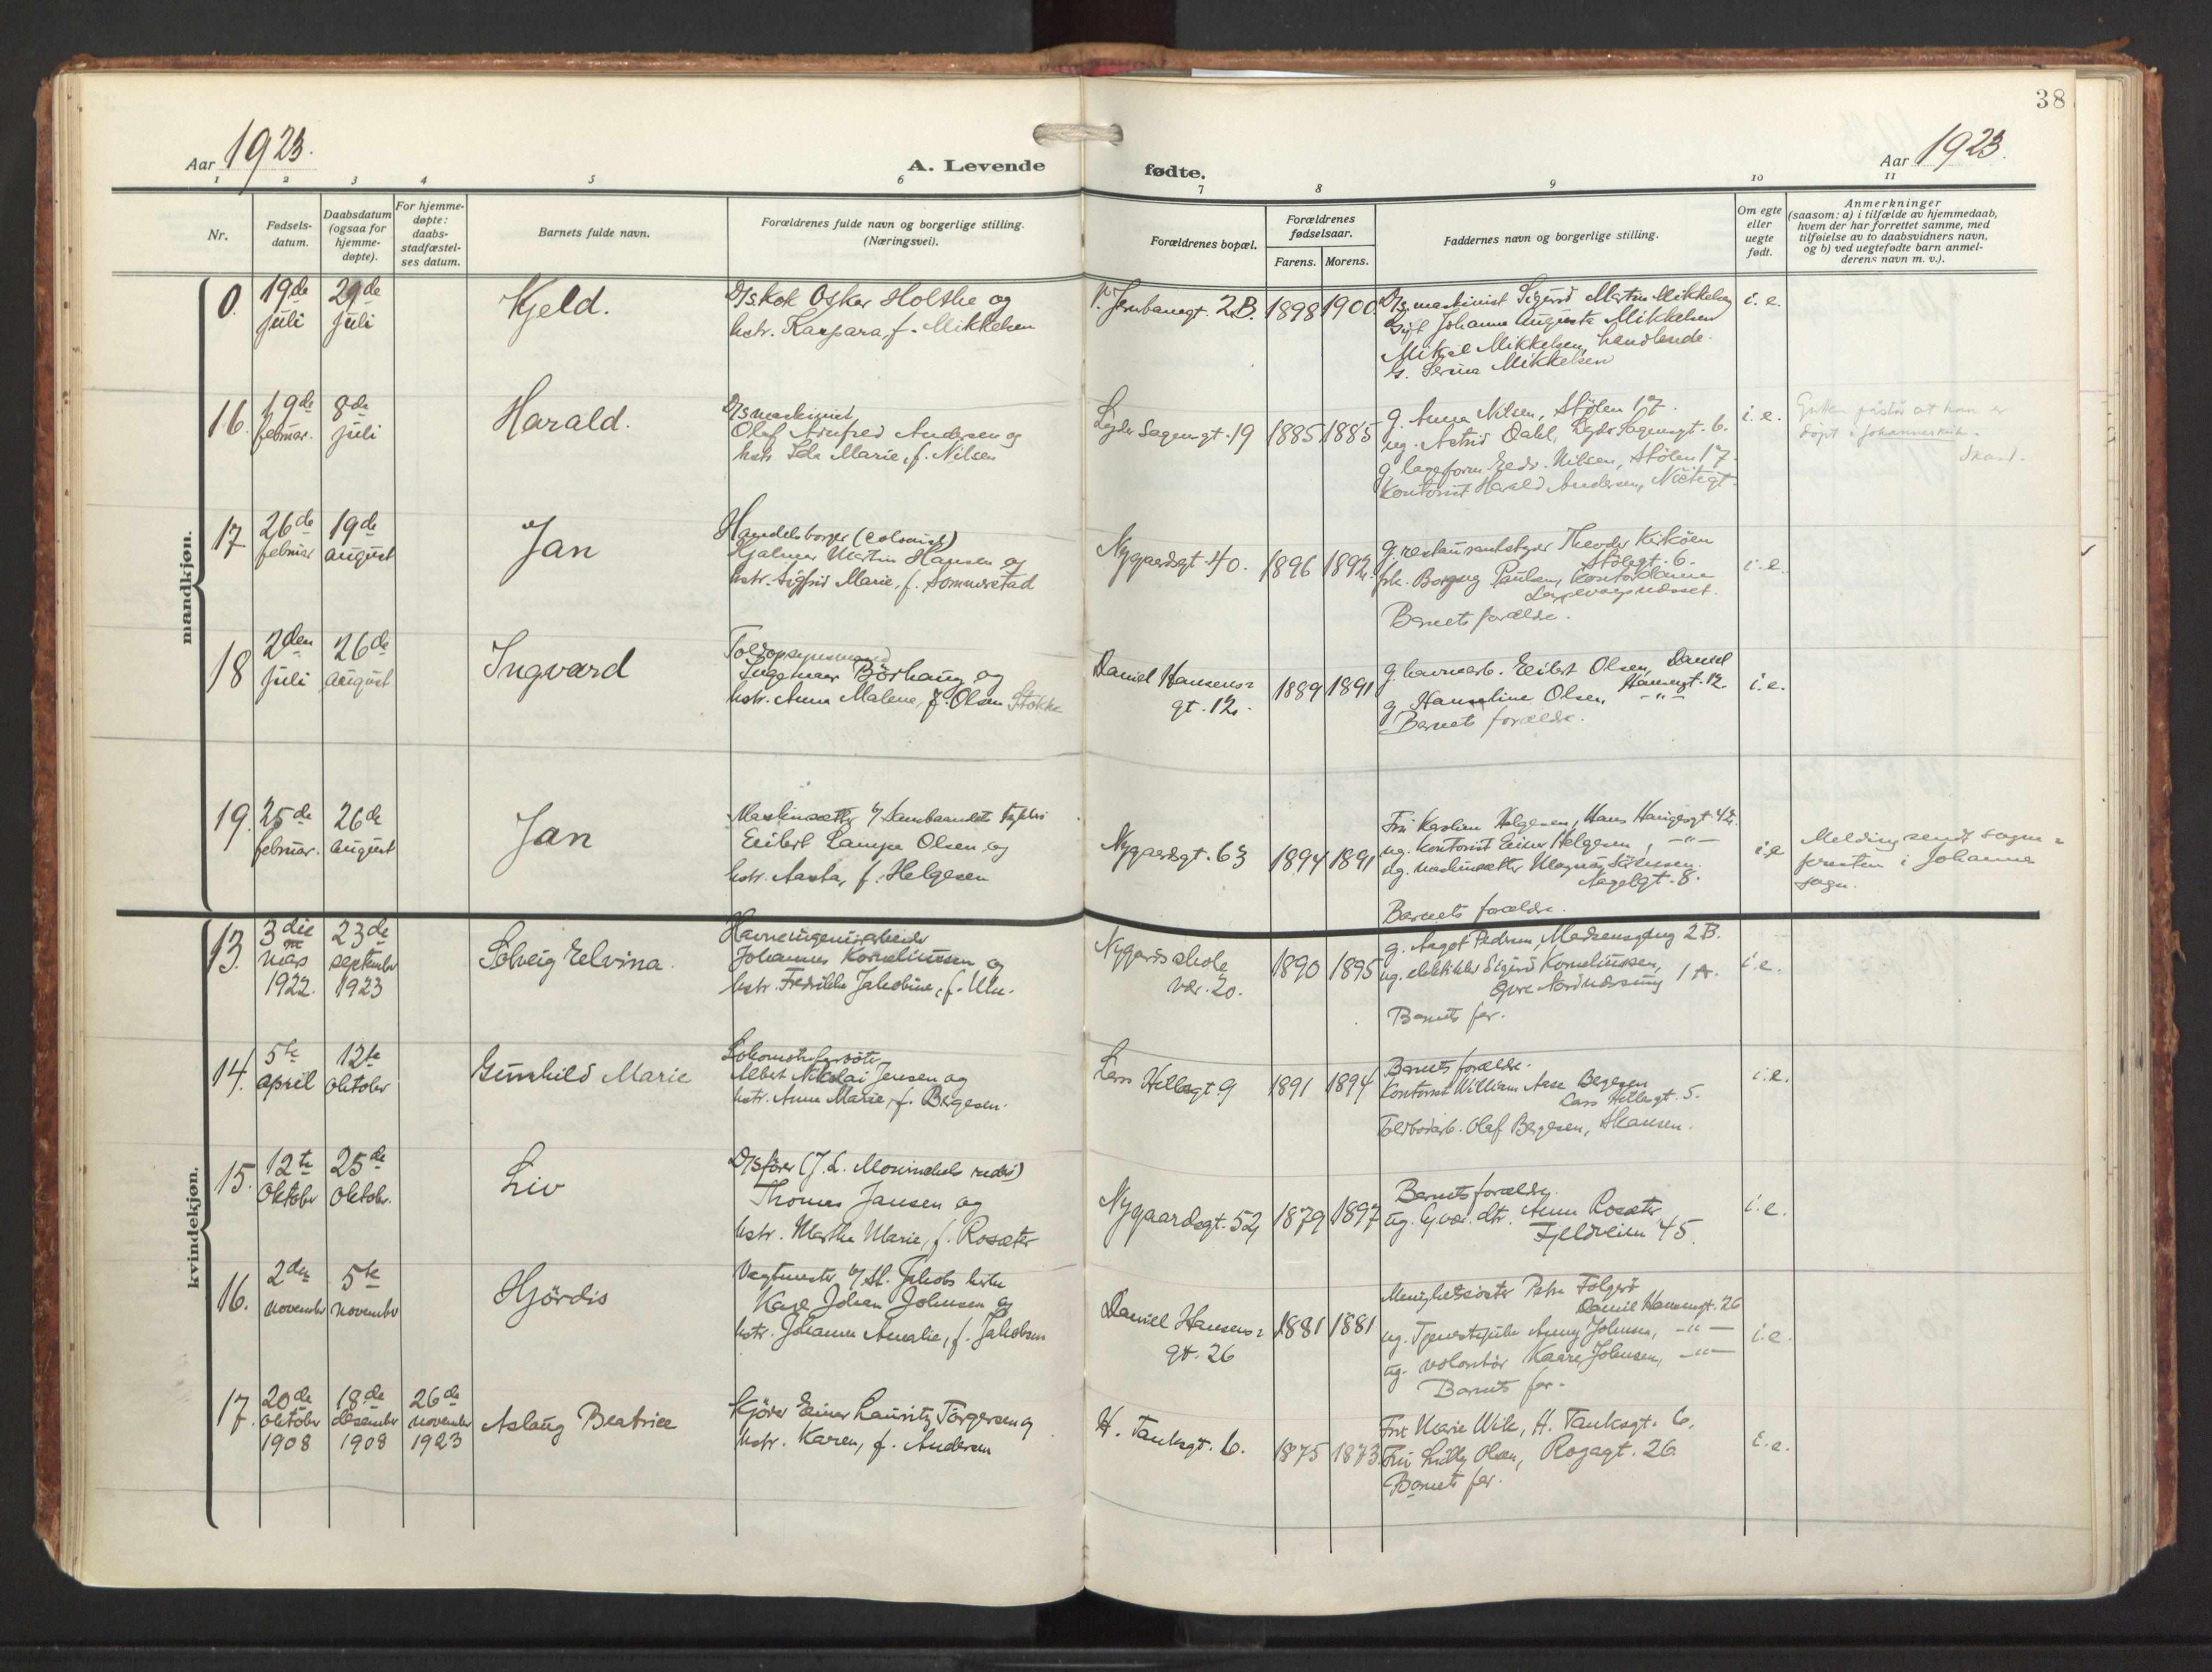 38
Aar 1923.
A. Levende
fødte.
Aar 1923.
1 2 3 4 5 6 7 8 9 10 11
Nr.
Fødsels-
datum.
Daabsdatum
(ogsaa for
hjemme-
døpte).
For hjemme-
døpte:
daabs-
stadfæstel-
ses datum.
Barnets fulde navn.
Forældrenes fulde navn og borgerlige stilling.
(Næringsvei).
Forældrenes bopæl.
Forældrenes
fødselsaar.
Farens. Morens.
Faddernes navn og borgerlige stilling.
Om egte
eller
uegte
født.
Anmerkninger
(saasom: a) i tilfælde av hjemmedaab,
hvem der har forrettet samme, med
tilføielse av to daabsvidners navn,
og b) ved uegtefødte barn anmel-
derens navn m. v.).
mandkjøn.
0.
19de
juli
29de
juli
Kjeld.
D/s kok Oskar Holthe og
hstr. Kaspara, f. Mikkelsen
Jernbanegt. 2B.
1898 1900
D/s. maskinist Sigurd Martin Mikkelsen
Gift Johanne Augusta Mikkelsen
Mikal Mikkelsen, handlende.
G. Serina Mikkelsen
i. e.
16.
19de
februar.
8de
juli
Harald.
D/s maskinist
Olaf Arnfred Andersen og
hstr. Ida Marie, f. Nilsen
Lyder Sagensgt. 19
1885 1885
g. Anna Nilsen, Stølen 17.
ug. Astrid Dahl, Lyder Sagensgt. 6.
g. lageform. Nilsen, Stølen 17.
Kontorist Harald Andersen,
i. e.
påstår at han er
døpt i Johanneskirk.
17
26de
februar
19de
august
Jan
Handelsborger (colonial)
Hjalmar Martin Hansen og
hstr. Sigfrid Marie, f. Sommerstad
Nygaardsgt. 40.
1896 1892.
g. restaurantstyrer Theodor Kirkøen
Stølegt. 6.
frk. Borgny Paulsen, Kontordame
Barnets forældre.
i. e.
18
2den
juli
26de
august
Ingvard
Toldopsynsmand
Ingemar Börhaug og
hstr. Anna Malene, f. Olsen Stokke
Daniel Hansens-
gt. 12.
1889 1891
g. havnearb. Eilert Olsen, Daniel
Hansensgt. 12.
g. Hanseline Olsen, -"-
Barnets forældre.
i. e.
19.
25de
februar.
26de
august
Jan
Maskinsætter
Eilert Lampe Olsen og
hstr. Aasta, f. Helgesen
Nygaardsgt. 63
1894 1891
Fru Karoline Helgesen, Hans Haugesgt. 42.
ug. kontorist Einar Helgesen, -"-
ug. maskinsætter Magnus
Nagelgt. 8.
Barnets forældre.
i. e
Melding sendt sogne-
presten i Johannes
sogn.
kvindekjøn.
13.
3die
mars
1922.
23de
september
1923
Solveig Elvina.
Johannes Korneliussen og
hstr. Fredrikke Jakobine, f.
Nygaards skole
vær. 20.
1890 1895
g. Aagot Pedersen, Madsensgang 2B.
ug. elektriker Sigurd Korneliussen,
1 A.
Barnets far.
i. e.
14.
5te
april
12te
oktober
Gunhild Marie
Albert Nikolai Jensen og
hstr. Anna Marie, f. Bergesen.
Lars Hillesgt. 9
1891 1894
Barnets forældre.
Kontorist William Aase Bergesen
Lars Hillesgt. 5.
Toldbodarb. Olaf Bergesen, Skansen.
i. e.
15.
12te
oktober
25de
oktob.
Liv
D/s fører (J. L. Mowinckels rederi)
Thomas Jansen og
hstr. Marthe Marie, f. Rosæter
Nygaardsgt. 52
1879 1897
Barnets forældre.
ug. Anna Rosæter
Fjeldveien 45.
i. e.
16.
2den
november
5te
november
Hjördis
Vagtmester v/ St. Jakobs kirke
Karl Johan Johnsen og
hstr. Johanna Amalie, f. Jakobsen
Daniel Hansens-
gt. 26
1881 1881
Menighetssøster Petra Folgerö
Daniel Hansensgt. 26
ug. Tjenestepike Anny Johnsen, -"-
ug. volontør Kaare Johnsen, -"-
Barnets far.
i. e.
17.
20de
oktober
1908
18de
desember
1908
26de
november
1923
Aslaug Beatrice
Kjører Einar Lauritz Torgersen og
hstr. Karen, f. Andersen
H. Tanksgt. 6.
1875 1873.
Fru Marie Wik, H. Tanksgt. 6.
Fru Lilly Olsen, Rozagt. 26
Barnets far.
E. e.